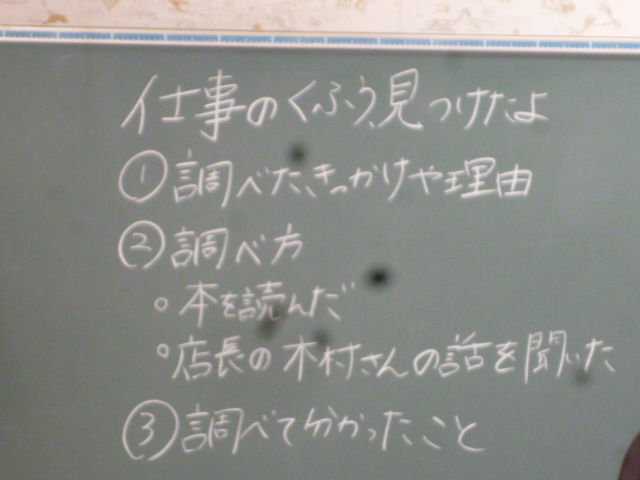 仕事のくふう、見つけたよ
①調べたきっかけや理由
②調べ方
○本を読んだ
○店長の木村さんの話を聞いた
③調べて分かったこと